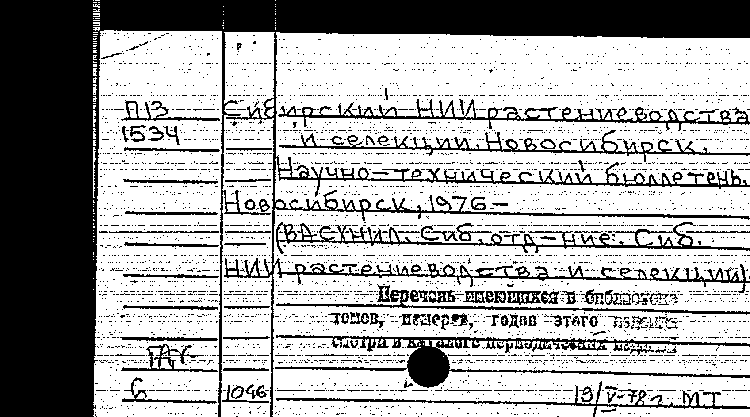 П13 Сибирский НИИ растениеводства
1534 и селекции. Новосибирск.
Научно-технический бюллетень.
Новосибирск, 1976-
(ВАСХНИЛ. Сиб. отд-ние. Сиб.
НИИ растениеводства и селекции).
Перечень имеющихся в библиотеке
томов, номеров, годов этого издания
смотри в каталоге периодических изданий
6 1046 19/V-78 г. МТ